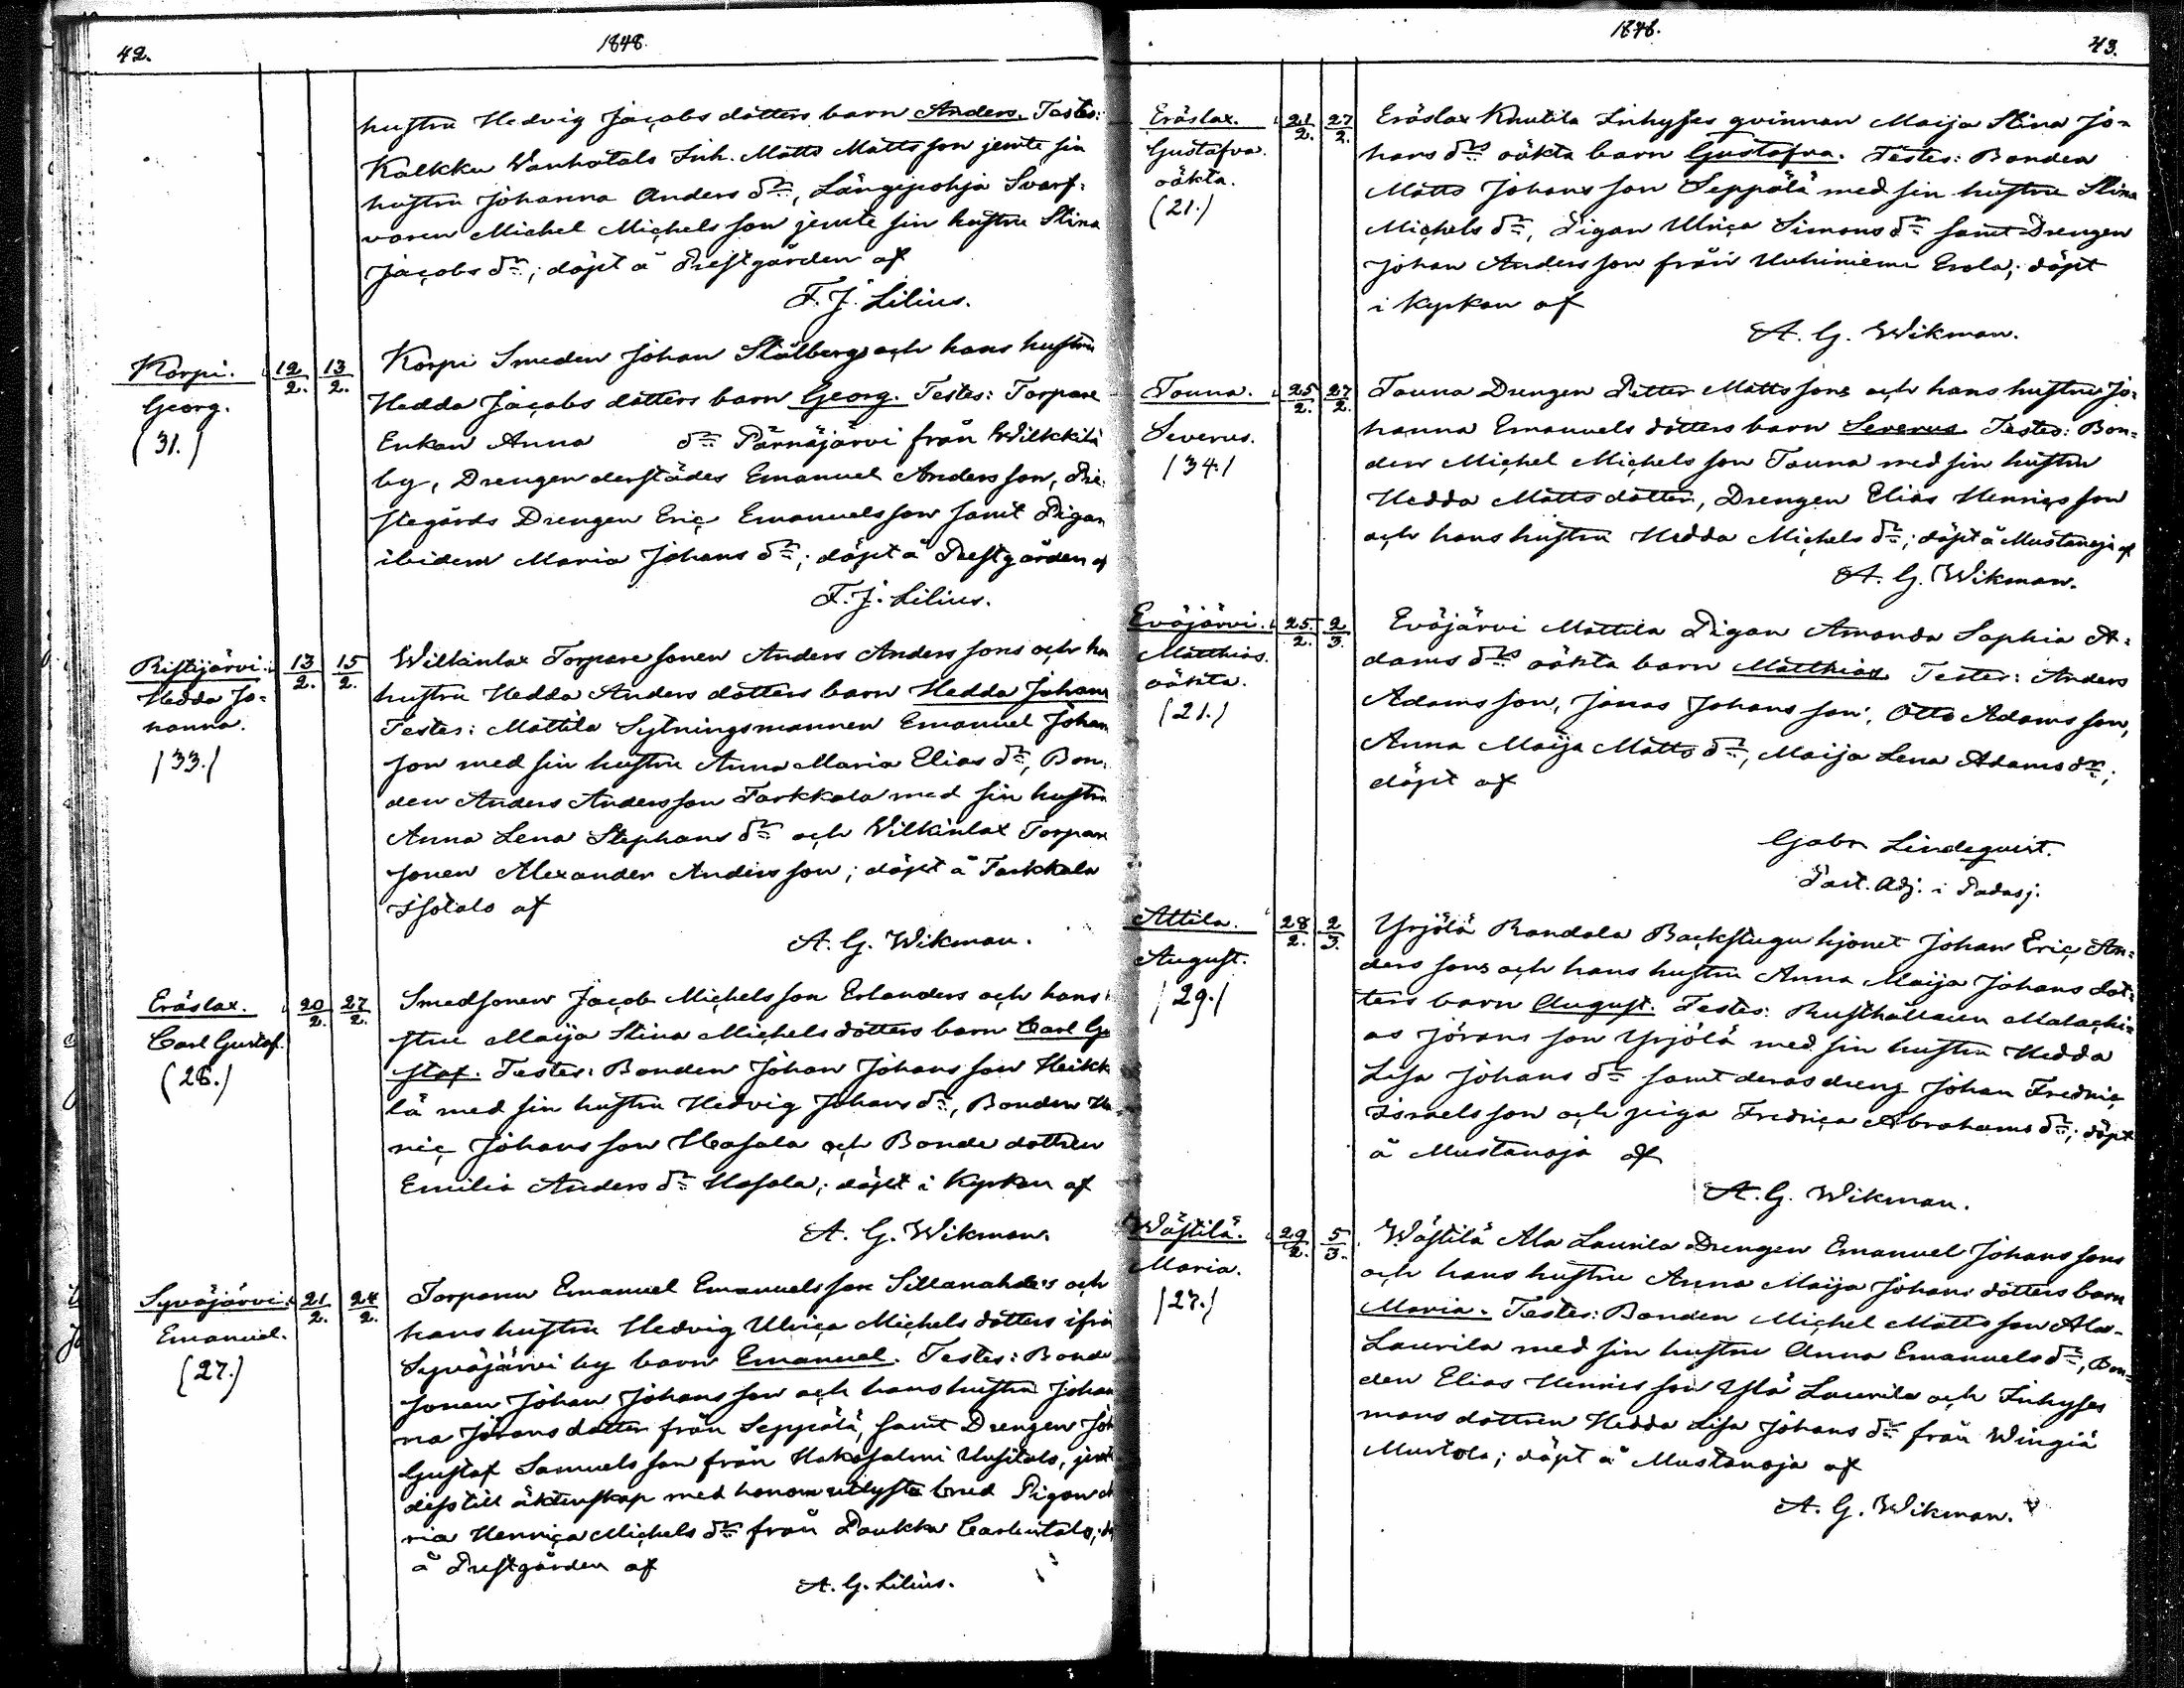 42.
1848.
hustru Hedvig Jacobs dotters barn Anders. Testes:
Kalkku Wanhatalo Inh. Matts Mattsson jemte sin
hustru Johanna Anders dr, Längipohja Svarf-
varen Michel Michelsson jemte sin hustru Stina
Jacobs dr; döpt å Prestgården af
F. J. Lilius.
Korpi.
Georg.
(31.)
12/2. 13/2.
Korpi Smeden Johan Stålbergs och hans hustru
Hedda Jacobs dotters barn Georg. Testes: Torpare
Enkan Anna dr Pärnäjärvi från Wilkkilä
by, Drengen derstädes Emanuel Andersson, Pre-
stegårds Drengen Eric Emanuelsson samt Pigan
ibidem Maria Johans dr; döpt å Prestgården af
F. J. Lilius.
Ristijärvi.
Hedda Jo-
hanna.
/33./
13/2. 15/2.
Wilkinlax Torparesonen Anders Anderssons och ha
hustru Hedda Anders dotters barn Hedda Johan
Testes: Mattila Sytningsmannen Emanuel Johan
son med sin hustru Anna Maria Elias dr, Bon-
den Anders Andersson Tarkkala med sin hustru
Anna Lena Stephans dr och Wilkinlax Torpare
sonen Alexander Andersson; döpt å Tarkkala
Isotalo af
A. G. Wikman.
Eräslax.
Carl Gustaf.
(28.)
20/2. 27/2.
Smedsonen Jacob Michelsson Erlanders och hans
stru Maija Stina Michels dotters barn Carl Gu
staf. Testes: Bonden Johan Johansson Heikk
lä med sin hustru Hedvig Johans dr, Bonden He
ric Johansson Hasala och Bonde dottren
Emilia Anders dr Hasala; döpt i Kyrkan af
A. G. Wikman.
Syväjärvi.
Emanuel.
(27.)
21/2. 24/2.
Torparen Emanuel Emanuelsson Sillanahde's och
hans hustru Hedvig Ulrica Michels dotters ifrå
Syväjärvi by barn Emanuel. Testes: Bonde
sonen Johan Johansson och hans hustru Johan
na Jörans dotter från Seppälä, samt Drengen Joh
Gustaf Samuelsson från Hakosalmi Uusitalo, jemt
dess till äktenskap med honom utlysta brud Pigan
ria Henrica Michels dr från Paukku Carlintalo;
å Prestgården af
A. G. Lilius.
1848.
43.
Eräslax.
Gustafva.
oäkta.
(21.)
21/2. 27/2.
Eräslax Knutila Inhyses qvinnan Maija Stina Jo-
hans drs oäkta barn Gustafva. Testes: Bonden
Matts Johansson Seppälä med sin hustru Stina
Michels dr, Pigan Ulrica Simons dr samt Drengen
Johan Andersson från Uuhiniemi Erola; döpt
i kyrkan af
A. G. Wikman.
Touna.
Severus.
/34./
25/2. 27/2.
Touna Drengen Petter Mattssons och hans hustru Jo-
hanna Emanuels dotters barn Severus. Testes: Bon-
den Michel Michelsson Touna med sin hustru
Hedda Matts dotter, Drengen Elias Henricsson
och hans hustru Hedda Michels dr; döpt å Mustanoja af
A. G. Wikman.
Eväjärvi.
Matthias.
oäkta.
/21./
25/2. 2/3.
Eväjärvi Mattila Pigan Amanda Sophia A-
dams drs oäkta barn Matthias. Testes: Anders
Adamsson, Jonas Johansson, Otto Adamsson,
Anna Maija Matts dr, Maija Lena Adams dr;
döpt af
Gabr. Lindequist.
Past. Adj. i Padasj.
Attila.
August.
/29./
28/2. 2/3.
Yrjölä Randala Backstugu hjonet Johan Eric An-
derssons och hans hustru Anna Maija Johans dot-
ters barn August. Testes: Rusthållaren Malachi-
as Jöransson Yrjölä med sin hustru Hedda
Lisa Johans dr samt deras dreng Johan Fredric
Israelsson och piga Fredrica Abrahams dr; döpt
å Mustanoja af
A. G. Wikman.
Wästilä.
Maria.
/27./
29/2. 5/3.
Wästilä Ala Laurila Drengen Emanuel Johanssons
och hans hustru Anna Maija Johans dotters barn
Maria. Testes: Bonden Michel Mattsson Ala-
Laurila med sin hustru Anna Emanuels dr, Bon-
den Elias Henricsson Ylä Laurila och Inhyses
mans dottren Hedda Lisa Johans dr från Wingiä
Murtola; döpt å Mustanoja af
A. G. Wikman.